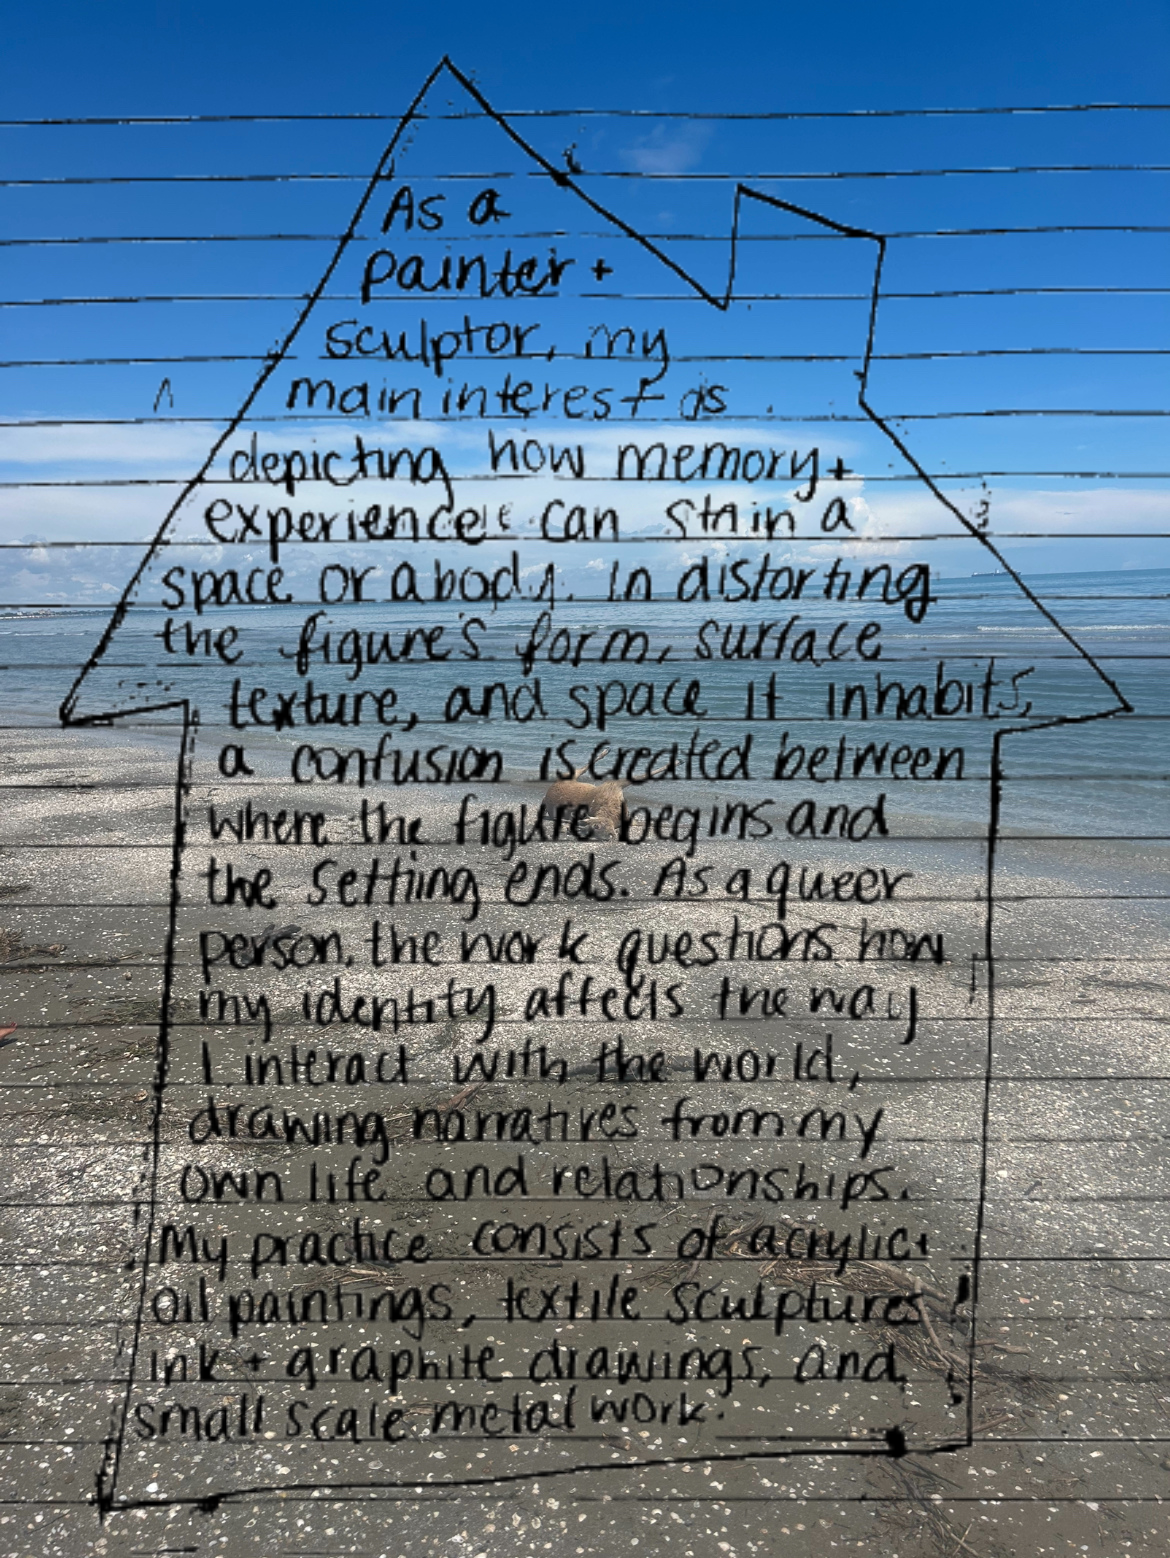 As a
painter +
sculptor, my
main interest is
depicting how memory +
experience can stain a
space or a body. In distorting
the figure's form, surface
texture, and space it inhabits,
a confusion is created between
where the figure begins and
the setting ends. As a queer
person, the work questions how
my identity affects the way
I interact with the world,
drawing narratives from my
own life and relationships.
My practice consists of acrylic +
oil paintings, textile sculptures,
ink + graphite drawings, and
small scale metal work.